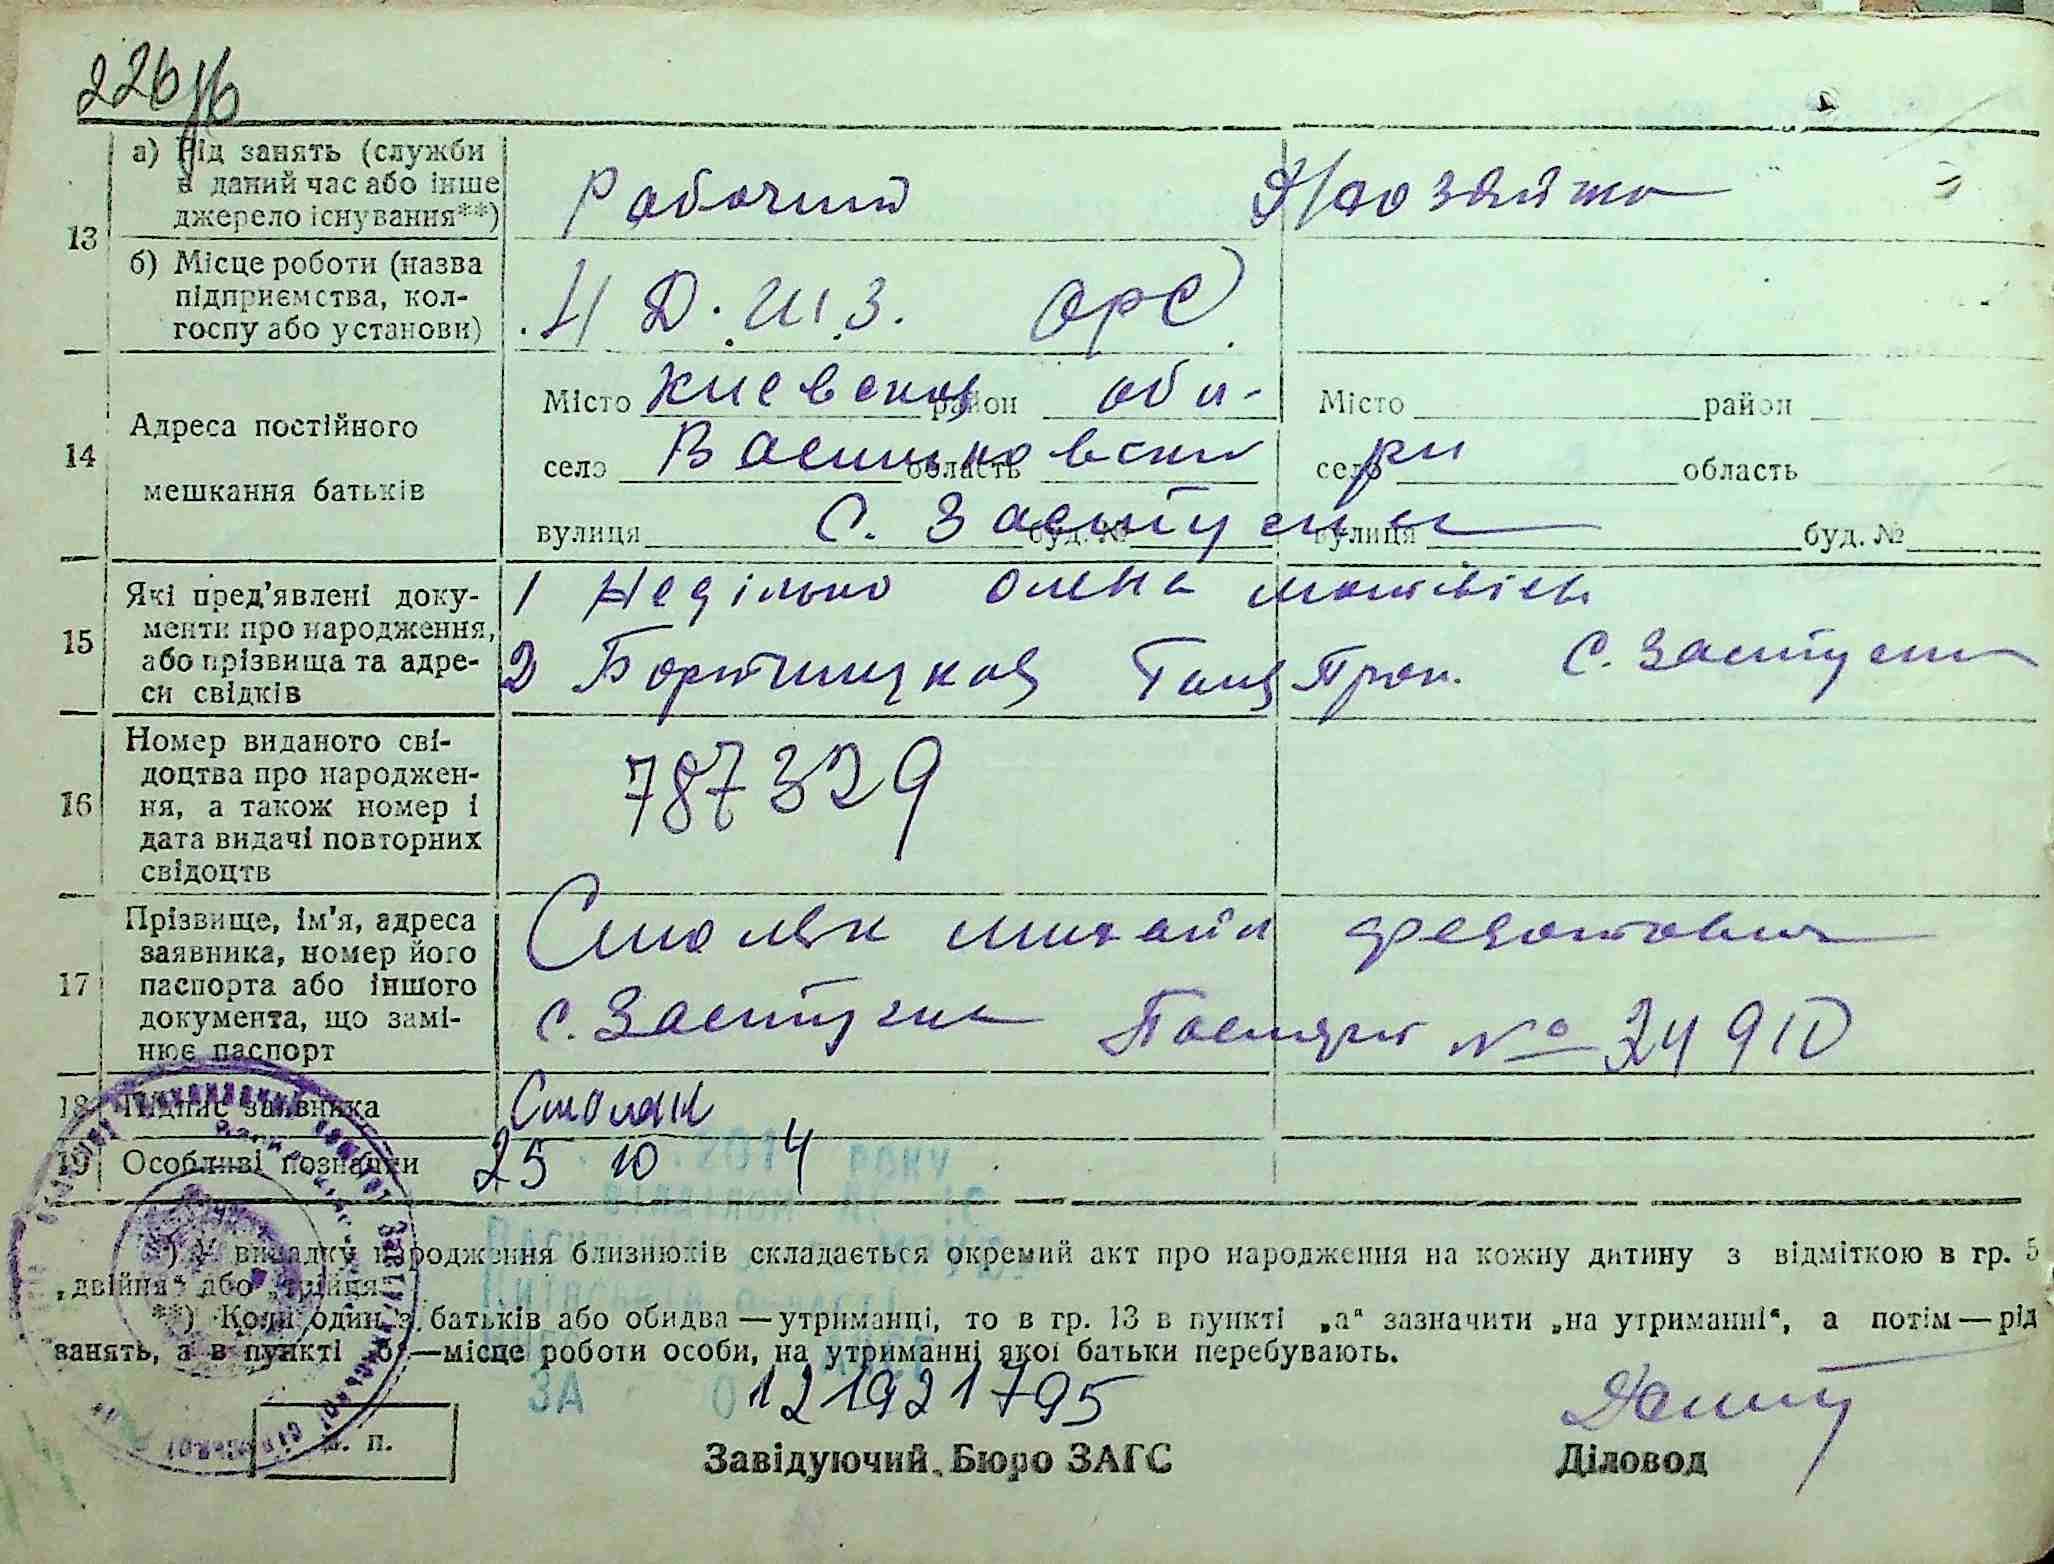 226 16
13 а) Рід занять (служби в даний час або інше джерело існування**) Рабочий Домохозяйка
б) Місце роботи (назва підприємства, колгоспу або установи) Д. Ш. З. ОРС
14 Адреса постійного мешкання батьків
Місто Киевской район обл. Місто район
село Васильковский область село р-н область
вулиця с. Застугна буд. № вулиця буд. №
15 Які пред'явлені документи про народження, або прізвища та адреси свідків
1 Неділько Олена
2 Тан Прок. с. Застугна
16 Номер виданого свідоцтва про народження, а також номер і дата видачі повторних свідоцтв 787329
17 Прізвище, ім'я, адреса заявника, номер його паспорта або іншого документа, що замінює паспорт
Столяк Михайл Федотович
с. Застугна Паспорт № 24910
18 Підпис заявника Столяк
19 Особливі познаки
25 10 2014 РОКУ
*) У випадку народження близнюків складається окремий акт про народження на кожну дитину з відміткою в гр. 5
„двійня“ або „трійця“.
**) Коли один з батьків або обидва — утриманці, то в гр. 13 в пункті „а“ зазначити „на утриманні“, а потім — рід
занять, а в пункті „б“ — місце роботи особи, на утриманні якої батьки перебувають.
ЗА 0 121921795
М. П.
Завідуючий Бюро ЗАГС Діловод